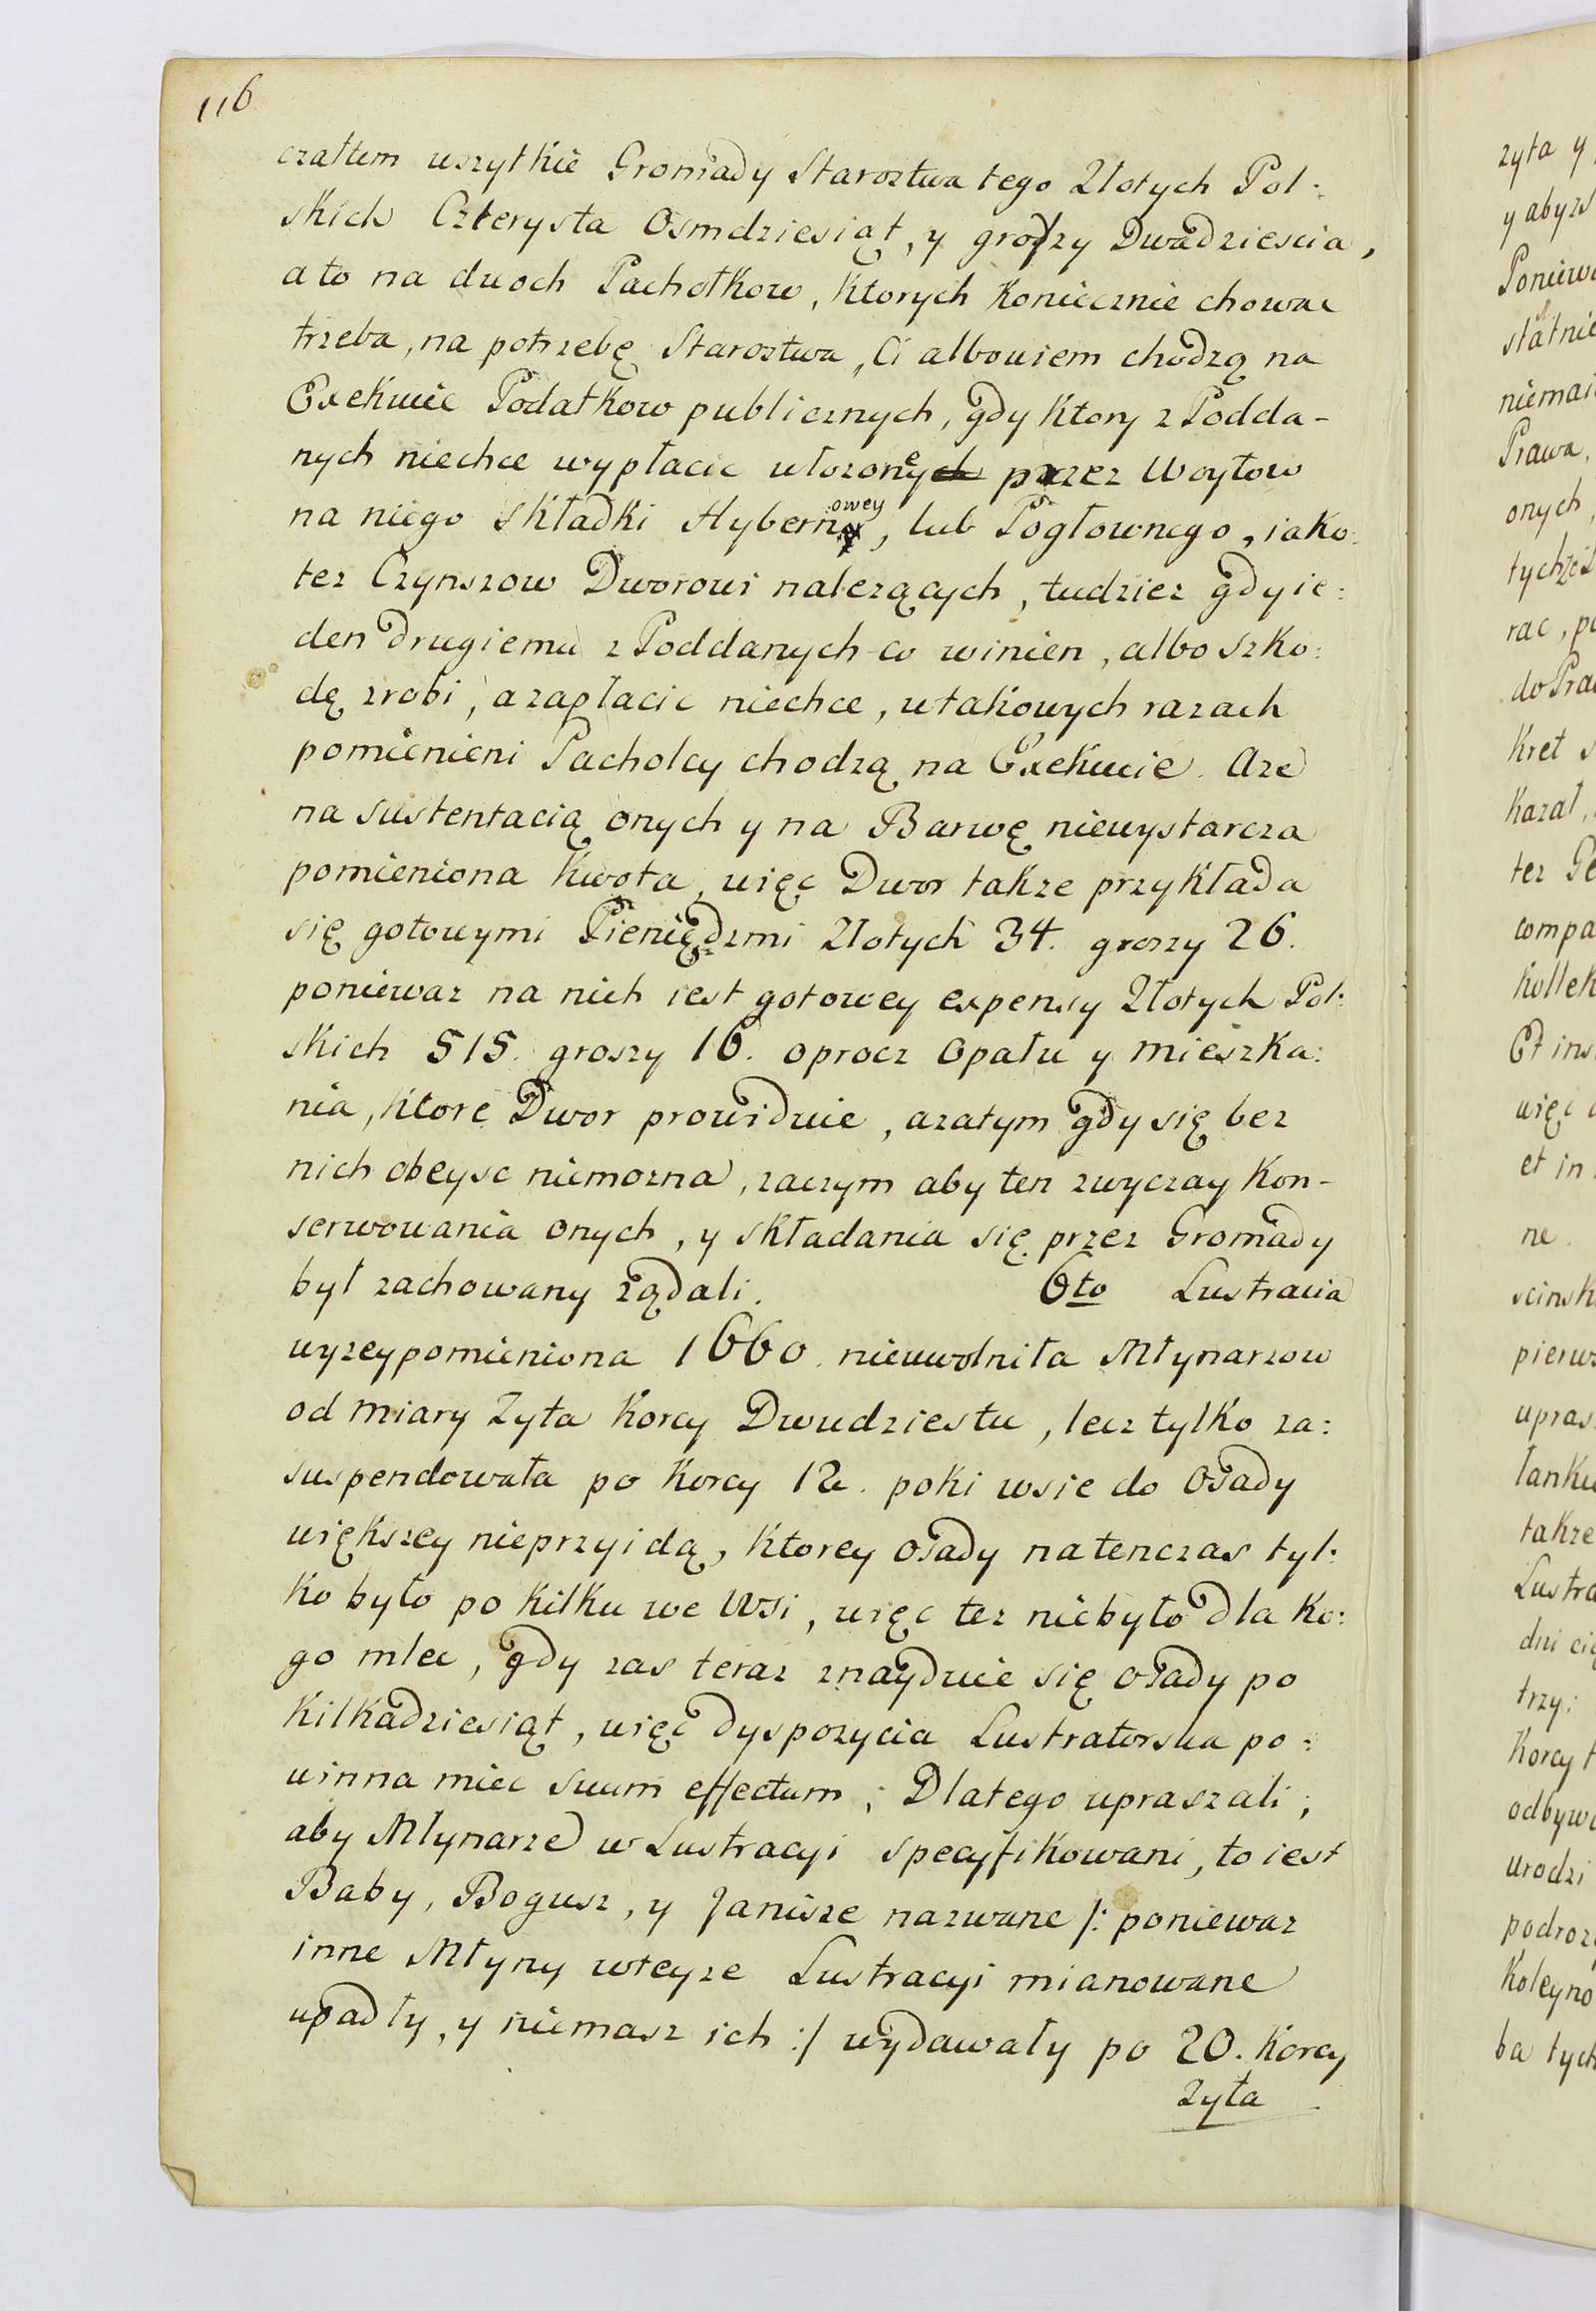 116
czałtem wszytkie Gromady Starostwa tego Złotych Pol:
skich Czterysta Osmdziesiąt, y groszy Dwadziescia,
a to na dwoch Pachołkow, Ktorych Koniecznie chowac
trzeba, na potrzebę Starostwa, Ci albowiem chodzą na
Exekucie Podatkow publicznych, gdy Ktory z Podda-
nych niechce wypłacic ułozone przez Woytow
na niego Składki Hybernowey, lub Pogłownego, iako:
tez Czynszow Dworowi nalezących, tudziez gdy ie:
den drugiemu z Poddanych co winien, albo szko:
dę zrobi, a zapłacic niechce, w takowych razach
pomienieni Pacholcy chodzą na Exekucie. Aze
na sustentacią onych y na Barwę niewystarcza
pomieniona Kwota, więc Dwor takze przykłada
się gotowymi Pieniędzmi Złotych 34. groszy 26.
poniewaz na nich iest gotowey expensy Złotych Pol:
skich 515. groszy 16. oprocz Opału y mieszka:
nia, Ktore Dwor prowiduie, azatym gdy się bez
nich obeysc niemozna, zaczym aby ten zwyczay Kon-
serwowania onych, y składania się przez Gromady
był zachowany ządali. 6to Lustracia
wyzeypomieniona 1660. nieuwolniła Młynarzow
od miary Zyta Korcy Dwudziestu, lecz tylko za:
suspendowała po Korcy 12. poki wsie do Osady
większey nieprzyidą, Ktorey Osady natenczas tyl:
ko było po Kilku we Wsi, więc tez niebyło dla Ko:
go mlec, gdy zas teraz znayduie się Osady po
Kilkadziesiąt, więc dyspozycia Lustratorska po:
winna miec suum effectum; Dlatego upraszali,
aby Młynarze w Lustracyi specyfikowani, to iest
Baby, Bogusz, y Janisze nazwane /: poniewaz
inne Młyny wteyze Lustracyi mianowane
upadły, y niemasz ich :/ wydawały po 20. Korcy
Zyta
zyta y
y abyzs
Poniewa
statnie
niemai
Prawa,
onych,
tychże
rac, po
do Pra
Kret s
Kazał,
tez Ge
compa
kollek
Et ins
więc
et in
ne.
scinsk
pierws
upras
łanku
takze
Lustra
dni cią
trzy:
Korcy
odbywa
urodzi
podroz
Koleyno
ba tych